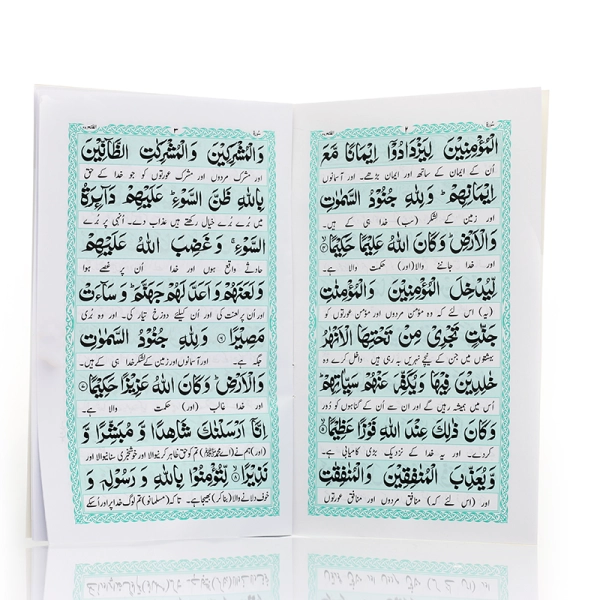 الْمُؤْمِنِيْنَ لِيَزْدَادُوْۤا اِيْمَانًا مَّعَ
اُن کے ایمان کے ساتھ اور ایمان بڑھے۔ اور آسمانوں
اِيْمَانِهِمْ ؕ وَلِلّٰهِ جُنُوْدُ السَّمٰوٰتِ
اور زمین کے لشکر (سب) خدا ہی کے ہیں۔
وَالْاَرْضِ ؕ وَكَانَ اللّٰهُ عَلِيْمًا حَكِيْمًا
اور خدا جاننے والا (اور) حکمت والا ہے۔
لِّيُدْخِلَ الْمُؤْمِنِيْنَ وَالْمُؤْمِنٰتِ
(یہ) اس لئے کہ وہ مؤمن مردوں اور مؤمن عورتوں کو
جَنّٰتٍ تَجْرِيْ مِنْ تَحْتِهَا الْاَنْهٰرُ
بہشتوں میں جن کے نیچے نہریں بہ رہی ہیں داخل کرے وہ
خٰلِدِيْنَ فِيْهَا وَيُكَفِّرَ عَنْهُمْ سَيِّاٰتِهِمْ
اُس میں ہمیشہ رہیں گے اور ان سے اُن کے گناہوں کو دُور
وَكَانَ ذٰلِكَ عِنْدَ اللّٰهِ فَوْزًا عَظِيْمًا
کردے۔ اور یہ خدا کے نزدیک بڑی کامیابی ہے۔
وَّيُعَذِّبَ الْمُنٰفِقِيْنَ وَالْمُنٰفِقٰتِ
اور (اس لئے کہ) منافق مردوں اور منافق عورتوں
۳
وَالْمُشْرِكِيْنَ وَالْمُشْرِكٰتِ الظَّآنِّيْنَ
اور مشرک مردوں اور مشرک عورتوں کو جو خدا کے حق
بِاللّٰهِ ظَنَّ السَّوْءِ ؕ عَلَيْهِمْ دَآئِرَةُ
میں بُرے بُرے خیال رکھتے ہیں عذاب دے۔ اُنہی پر بُرے
السَّوْءِ ۚ وَغَضِبَ اللّٰهُ عَلَيْهِمْ
حادثے واقع ہوں اور خدا اُن پر غصے ہوا
وَلَعَنَهُمْ وَاَعَدَّ لَهُمْ جَهَنَّمَ ؕ وَسَآءَتْ
اور اُن پر لعنت کی اور اُن کیلئے دوزخ تیار کی۔ اور وہ بُری
مَصِيْرًا وَلِلّٰهِ جُنُوْدُ السَّمٰوٰتِ
جگہ ہے۔ اور آسمانوں اور زمین کے لشکر خدا ہی کے ہیں۔
وَالْاَرْضِ ؕ وَكَانَ اللّٰهُ عَزِيْزًا حَكِيْمًا
اور خدا غالب (اور) حکمت والا ہے۔
اِنَّاۤ اَرْسَلْنٰكَ شَاهِدًا وَّمُبَشِّرًا وَّ
(اور) ہم نے (اے محمدﷺ) تم کو حق ظاہر کرنیوالا اور خوشخبری سنانیوالا اور
نَذِيْرًا لِّتُؤْمِنُوْا بِاللّٰهِ وَرَسُوْلِهٖ وَ
خوف دلانے والا (بنا کر) بھیجا ہے۔ تاکہ (مسلمانو) تم لوگ خدا پر اور اُسکے